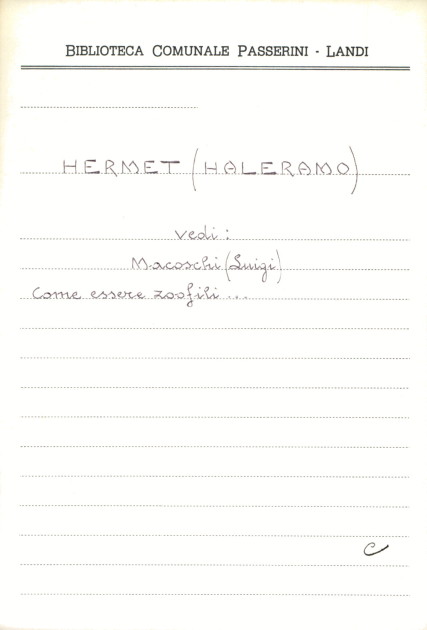 BIBLIOTECA COMUNALE PASSERINI - LANDI
HERMET (HALERAMO)
vedi:
Macoschi (Luigi)
Come essere zoofili ...
C